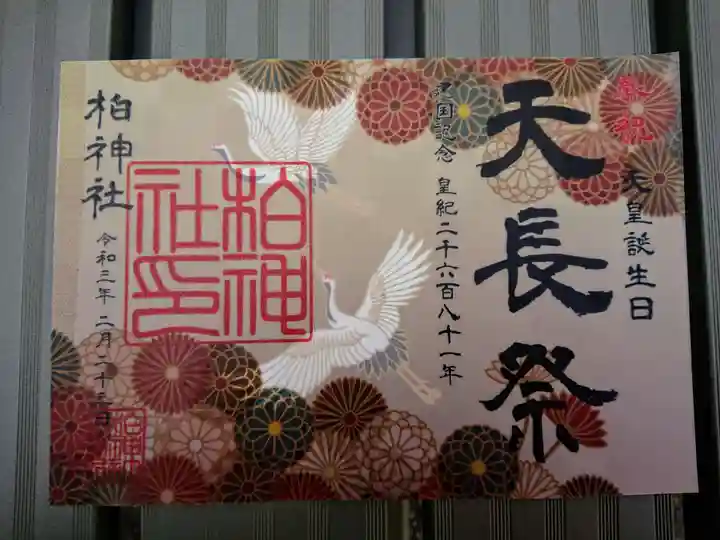 奉祝
天皇誕生日
天長祭
建国記念 皇紀二千六百八十一年
柏神社印
柏神社
令和三年 二月二十三日